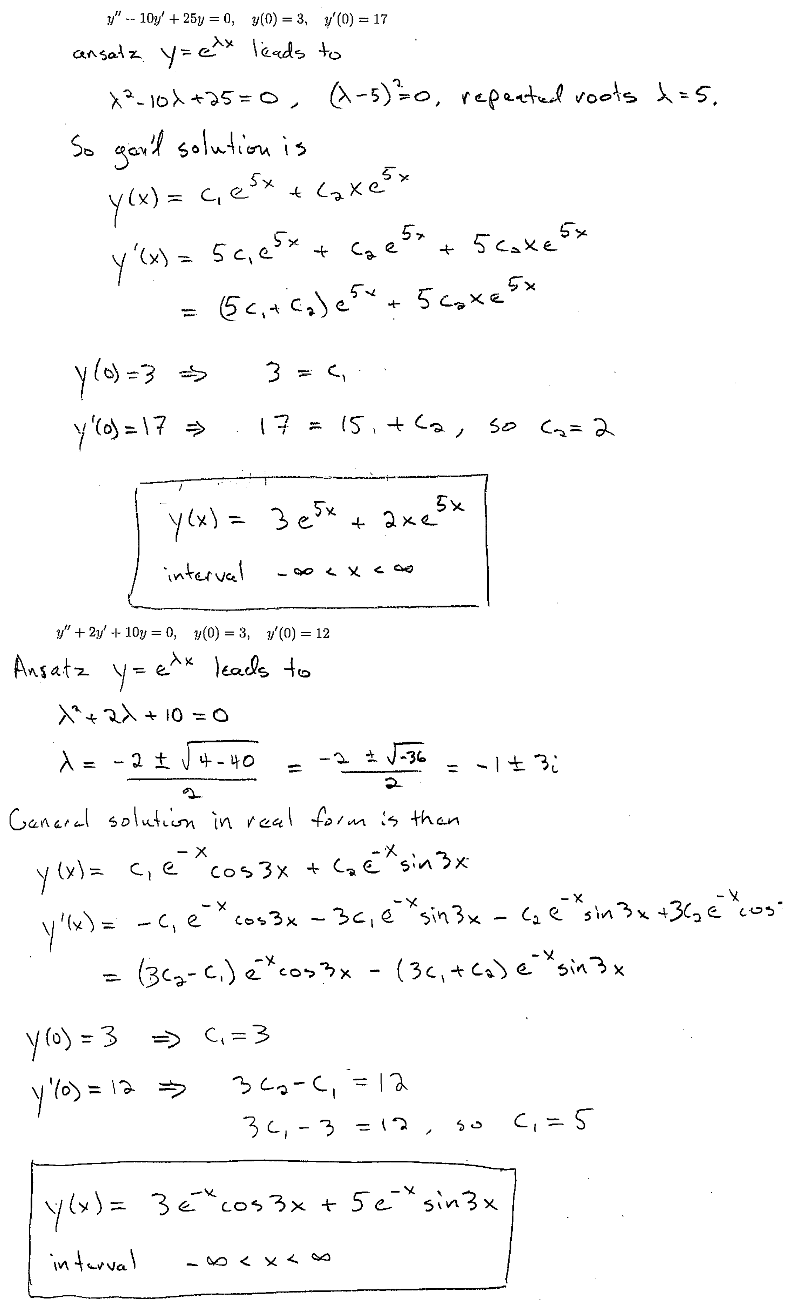 y'' -- 10y' + 25y = 0, y(0) = 3, y'(0) = 17
ansatz y = e^{λx} leads to
λ² - 10λ + 25 = 0, (λ-5)² = 0, repeated roots λ = 5.
So gen'l solution is
y(x) = c₁e^{5x} + c₂xe^{5x}
y'(x) = 5c₁e^{5x} + c₂e^{5x} + 5c₂xe^{5x}
= (5c₁ + c₂)e^{5x} + 5c₂xe^{5x}
y(0) = 3 ⇒ 3 = c₁
y'(0) = 17 ⇒ 17 = 15 + c₂, so c₂ = 2
y(x) = 3e^{5x} + 2xe^{5x}
interval -∞ < x < ∞
y'' + 2y' + 10y = 0, y(0) = 3, y'(0) = 12
Ansatz y = e^{λx} leads to
λ² + 2λ + 10 = 0
λ = (-2 ± √(4-40))/2 = (-2 ± √-36)/2 = -1 ± 3i
General solution in real form is then
y(x) = c₁e^{-x}cos3x + c₂e^{-x}sin3x
y'(x) = -c₁e^{-x}cos3x - 3c₁e^{-x}sin3x - c₂e^{-x}sin3x + 3c₂e^{-x}cos
= (3c₂-c₁)e^{-x}cos3x - (3c₁+c₂)e^{-x}sin3x
y(0) = 3 ⇒ c₁ = 3
y'(0) = 12 ⇒ 3c₂-c₁ = 12
3c₁-3 = 12, so c₁ = 5
y(x) = 3e^{-x}cos3x + 5e^{-x}sin3x
interval -∞ < x < ∞